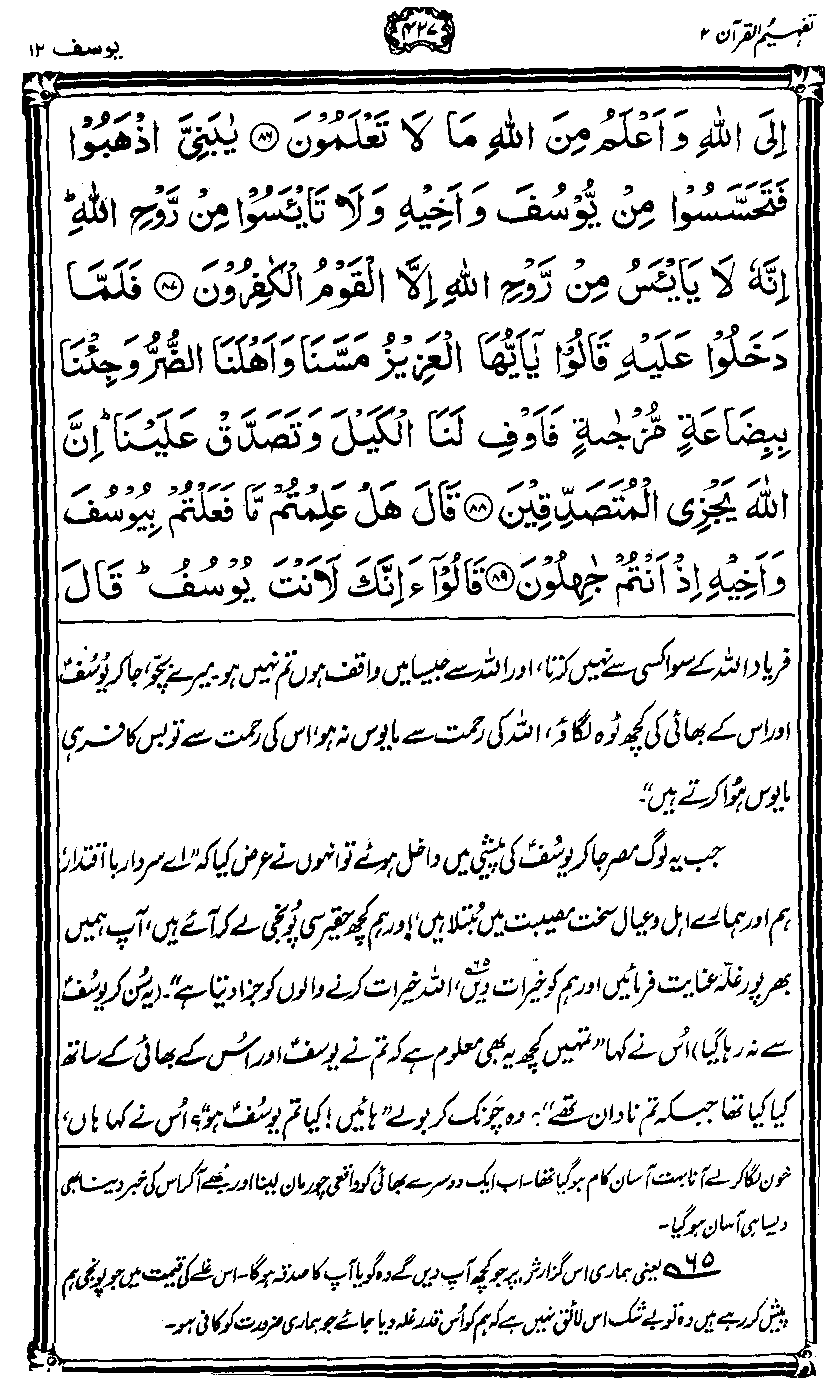 تفہیم القرآن ۲
۴۲۷
یوسف ۱۲
اِلَی اللّٰهِ وَاَعْلَمُ مِنَ اللّٰهِ مَا لَا تَعْلَمُوْنَ ﴿۸۶﴾ یٰبَنِیَّ اذْهَبُوْا
فَتَحَسَّسُوْا مِنْ یُّوْسُفَ وَاَخِیْهِ وَلَا تَایْـَٔسُوْا مِنْ رَّوْحِ اللّٰهِ ؕ
اِنَّهٗ لَا یَایْـَٔسُ مِنْ رَّوْحِ اللّٰهِ اِلَّا الْقَوْمُ الْکٰفِرُوْنَ ﴿۸۷﴾ فَلَمَّا
دَخَلُوْا عَلَیْهِ قَالُوْا یٰۤاَیُّهَا الْعَزِیْزُ مَسَّنَا وَاَهْلَنَا الضُّرُّ وَجِئْنَا
بِبِضَاعَةٍ مُّزْجٰىةٍ فَاَوْفِ لَنَا الْکَیْلَ وَتَصَدَّقْ عَلَیْنَا ؕ اِنَّ
اللّٰهَ یَجْزِی الْمُتَصَدِّقِیْنَ ﴿۸۸﴾ قَالَ هَلْ عَلِمْتُمْ مَّا فَعَلْتُمْ بِیُوْسُفَ
وَاَخِیْهِ اِذْ اَنْتُمْ جٰهِلُوْنَ ﴿۸۹﴾ قَالُوْۤا ءَاِنَّكَ لَاَنْتَ یُوْسُفُ ؕ قَالَ
فریاد اللہ کے سوا کسی سے نہیں کرتا، اور اللہ سے جیسا میں واقف ہوں تم نہیں ہو۔ میرے بچّو، جا کر یُوسُفؑ
اور اس کے بھائی کی کچھ ٹوہ لگاؤ، اللہ کی رحمت سے مایوس نہ ہو، اس کی رحمت سے تو بس کافر ہی
مایوس ہُوا کرتے ہیں“۔
جب یہ لوگ مصر جا کر یوسُفؑ کی پیشی میں داخل ہوئے تو انہوں نے عرض کیا کہ ”اے سردارِ با اقتدار،
ہم اور ہمارے اہل و عیال سخت مصیبت میں مُبتلا ہیں، اور ہم کچھ حقیر سی پُونجی لے کر آئے ہیں، آپ ہمیں
بھر پور غلّہ عنایت فرمائیں اور ہم کو خیرات دیں۶۵، اللہ خیرات کرنے والوں کو جزا دیتا ہے“۔ (یہ سُن کر یوسُفؑ
سے نہ رہا گیا) اُس نے کہا ”تمہیں کچھ یہ بھی معلوم ہے کہ تم نے یوسفؑ اور اُس کے بھائی کے ساتھ
کیا کیا تھا جبکہ تم نادان تھے“؟ وہ چونک کر بولے ”ہائیں! کیا تم یُوسُفؑ ہو“؟ اُس نے کہا ہاں،
خون لگا کر لے آنا بہت آسان کام ہو گیا تھا۔ اب ایک دوسرے بھائی کو واقعی چور مان لینا اور مجھے آکر اس کی خبر دینا بھی
ویسا ہی آسان ہو گیا۔
۶۵ یعنی ہماری اس گزارش پر جو کچھ آپ دیں گے وہ گویا آپ کا صدقہ ہوگا۔ اس غلّے کی قیمت میں جو پونجی ہم
پیش کر رہے ہیں وہ تو بے شک اس لائق نہیں ہے کہ ہم کو اُس قدر غلہ دیا جائے جو ہماری ضرورت کو کافی ہو۔